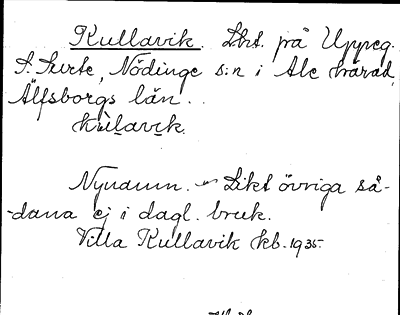 Kullavik. Lht. på Uppeg.
S. Surte, Nödinge s:n i Ale härad,
Älfsborgs län.
kùlavik.
Nynamn. Likt övriga så-
-dana ej i dagl. bruk.
Villa Kullavik kb. 1935.